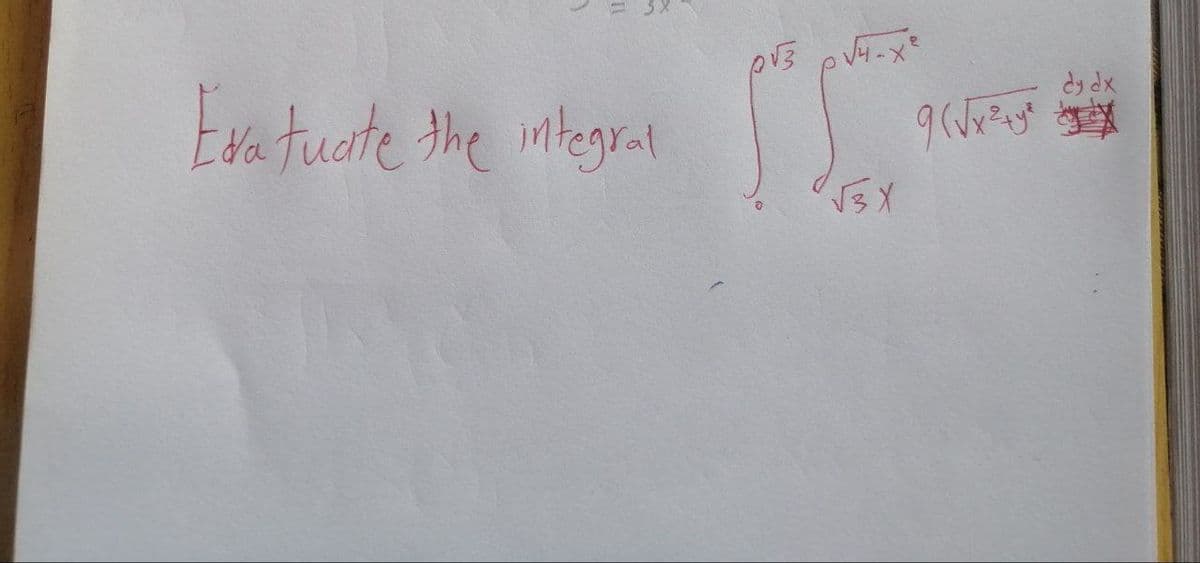 = 3x
Evatuate the integral ∫₀^√3 ∫_{√3 x}^{√4-x²} 9(√x²+y² dy dx